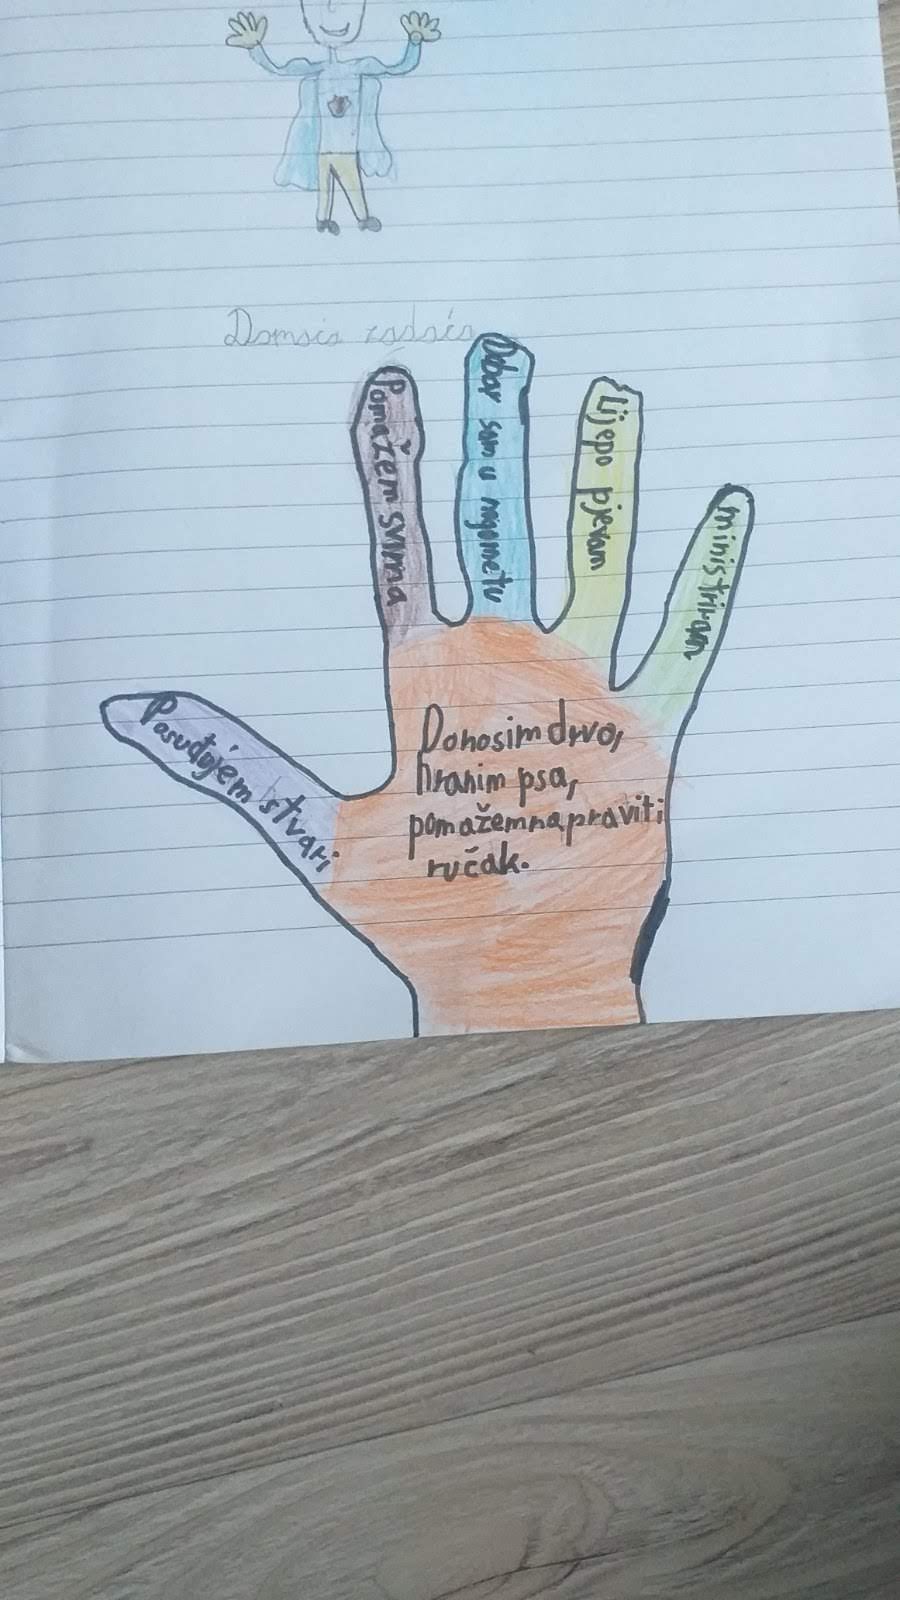 Domaća zadaća
Pomažem svima
Dobar sam u nogometu
Lijepo pjevam
ministriram
Posuđujem stvari
Donosim drvo,
hranim psa,
pomažem napraviti
ručak.